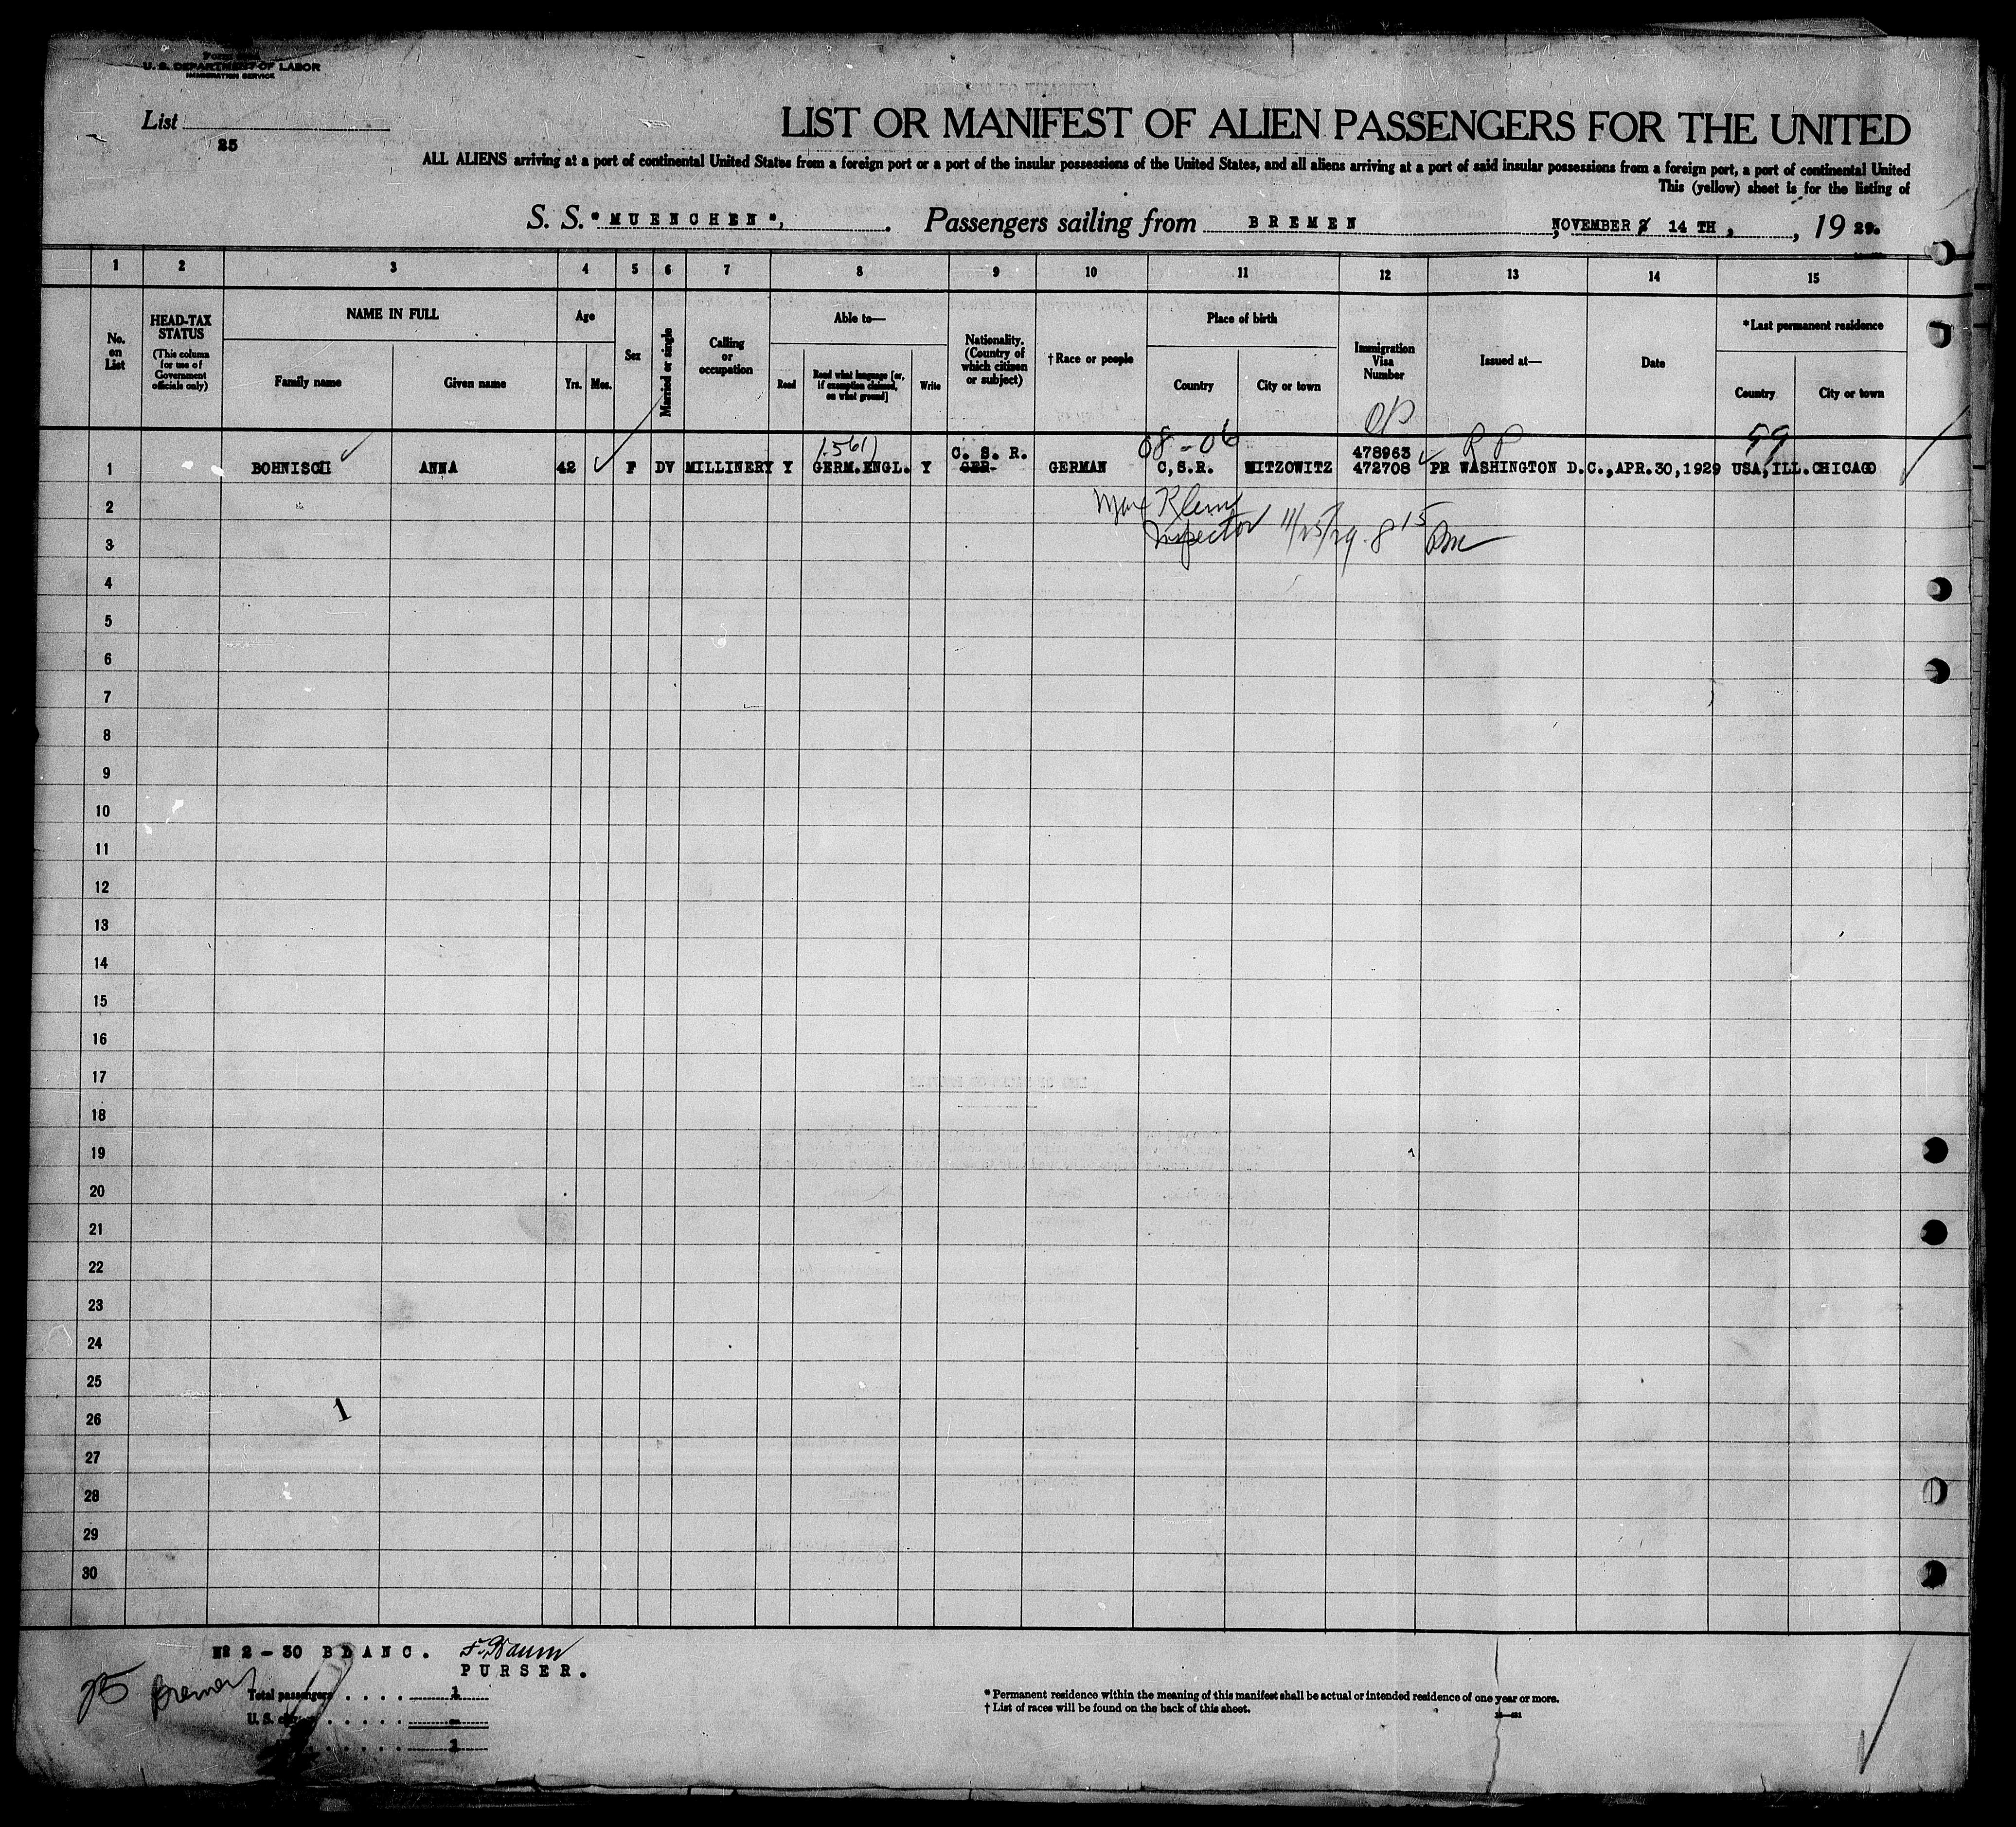 U. S. DEPARTMENT OF LABOR
IMMIGRATION SERVICE
List
25
LIST OR MANIFEST OF ALIEN PASSENGERS FOR THE UNITED
ALL ALIENS arriving at a port of continental United States from a foreign port or a port of the insular possessions of the United States, and all aliens arriving at a port of said insular possessions from a foreign port, a port of continental United
This (yellow) sheet is for the listing of
S. S. "MUENCHEN", . Passengers sailing from BREMEN , NOVEMBER 14 TH, , 19 29.
1 2 3 4 5 6 7 8 9 10 11 12 13 14 15
No. on List
HEAD-TAX STATUS
(This column for use of Government officials only)
NAME IN FULL
Family name
Given name
Age
Yrs.
Mos.
Sex
Married or single
Calling or occupation
Able to—
Read
Read what language [or, if exemption claimed, on what ground]
Write
Nationality. (Country of which citizen or subject)
† Race or people
Place of birth
Country
City or town
Immigration Visa Number
Issued at—
Date
*Last permanent residence
Country
City or town
08-06
99
C. S. R.
478963
1 BOHNISCH ANNA 42 F DV MILLINERY Y GERM.ENGL. Y GER. GERMAN C,S.R. WITZOWITZ 472708 PR WASHINGTON D.C., APR.30,1929 USA,ILL. CHICAGO
2
Inspector 11/25/29 - 8 15 Pm
3
4
5
6
7
8
9
10
11
12
13
14
15
16
17
18
19
20
21
22
23
24
25
1
26
27
28
29
30
No 2 - 30 BLANC.
PURSER.
Bremen
Total passengers . . . . 1
U. S. . . . . . -
. . . . . 1
* Permanent residence within the meaning of this manifest shall be actual or intended residence of one year or more.
† List of races will be found on the back of this sheet.